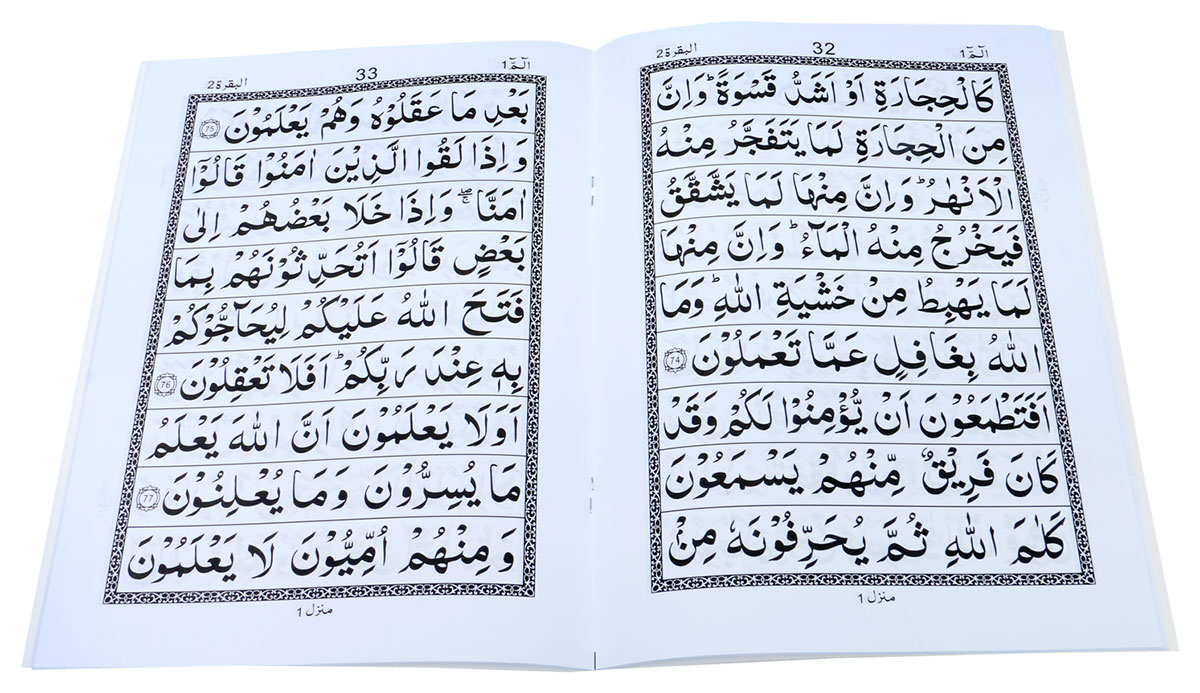 الٓمّٓ 1 32 البقرة 2
كَالْحِجَارَةِ اَوْ اَشَدُّ قَسْوَةً ؕ وَاِنَّ
مِنَ الْحِجَارَةِ لَمَا يَتَفَجَّرُ مِنْهُ
الْاَنْهٰرُ ؕ وَاِنَّ مِنْهَا لَمَا يَشَّقَّقُ
فَيَخْرُجُ مِنْهُ الْمَآءُ ؕ وَاِنَّ مِنْهَا
لَمَا يَهْبِطُ مِنْ خَشْيَةِ اللّٰهِ ؕ وَمَا
اللّٰهُ بِغَافِلٍ عَمَّا تَعْمَلُوْنَ 74
اَفَتَطْمَعُوْنَ اَنْ يُّؤْمِنُوْا لَكُمْ وَقَدْ
كَانَ فَرِيْقٌ مِّنْهُمْ يَسْمَعُوْنَ
كَلٰمَ اللّٰهِ ثُمَّ يُحَرِّفُوْنَهٗ مِنْۢ
منزل 1
الٓمّٓ 1 33 البقرة 2
بَعْدِ مَا عَقَلُوْهُ وَهُمْ يَعْلَمُوْنَ 75
وَاِذَا لَقُوا الَّذِيْنَ اٰمَنُوْا قَالُوْٓا
اٰمَنَّا ۖۚ وَاِذَا خَلَا بَعْضُهُمْ اِلٰى
بَعْضٍ قَالُوْٓا اَتُحَدِّثُوْنَهُمْ بِمَا
فَتَحَ اللّٰهُ عَلَيْكُمْ لِيُحَآجُّوْكُمْ
بِهٖ عِنْدَ رَبِّكُمْ ؕ اَفَلَا تَعْقِلُوْنَ 76
اَوَلَا يَعْلَمُوْنَ اَنَّ اللّٰهَ يَعْلَمُ
مَا يُسِرُّوْنَ وَمَا يُعْلِنُوْنَ 77
وَمِنْهُمْ اُمِّيُّوْنَ لَا يَعْلَمُوْنَ
منزل 1